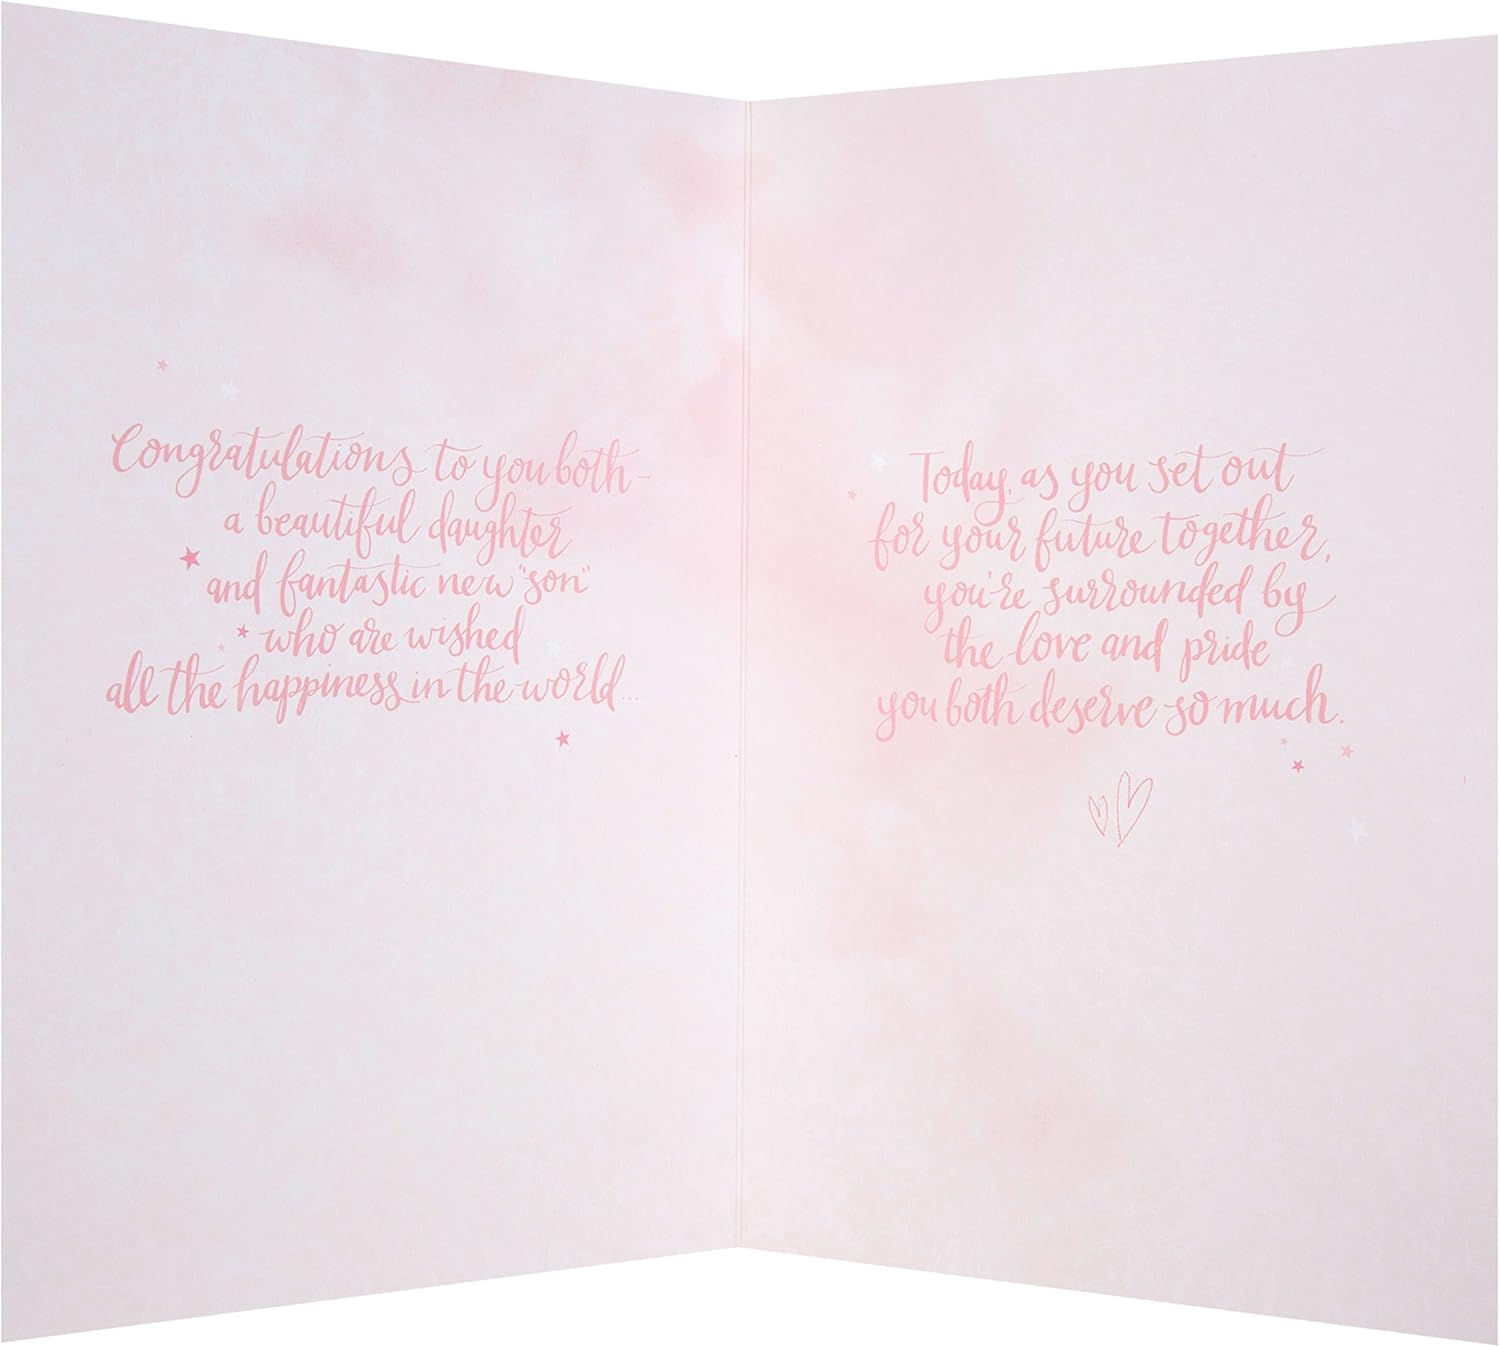 Congratulations to you both -
a beautiful daughter
and fantastic new "son"
who are wished
all the happiness in the world...
Today, as you set out
for your future together,
you're surrounded by
the love and pride
you both deserve so much.